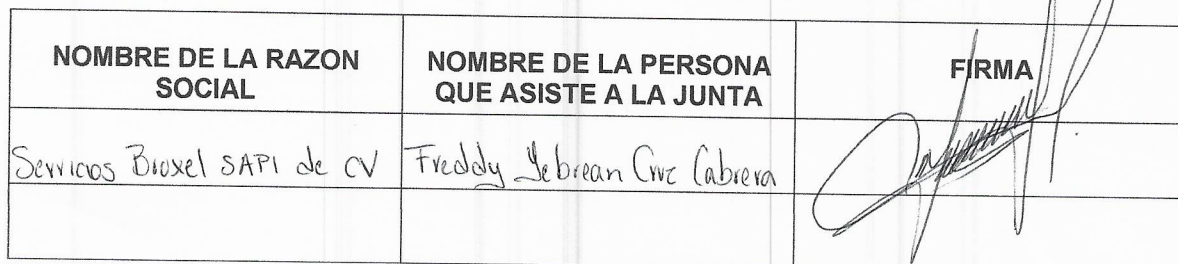 NOMBRE DE LA RAZON
SOCIAL
NOMBRE DE LA PERSONA
QUE ASISTE A LA JUNTA
FIRMA
Servicios Broxel SAPI de CV
Freddy Yebrean Cruz Cabrera